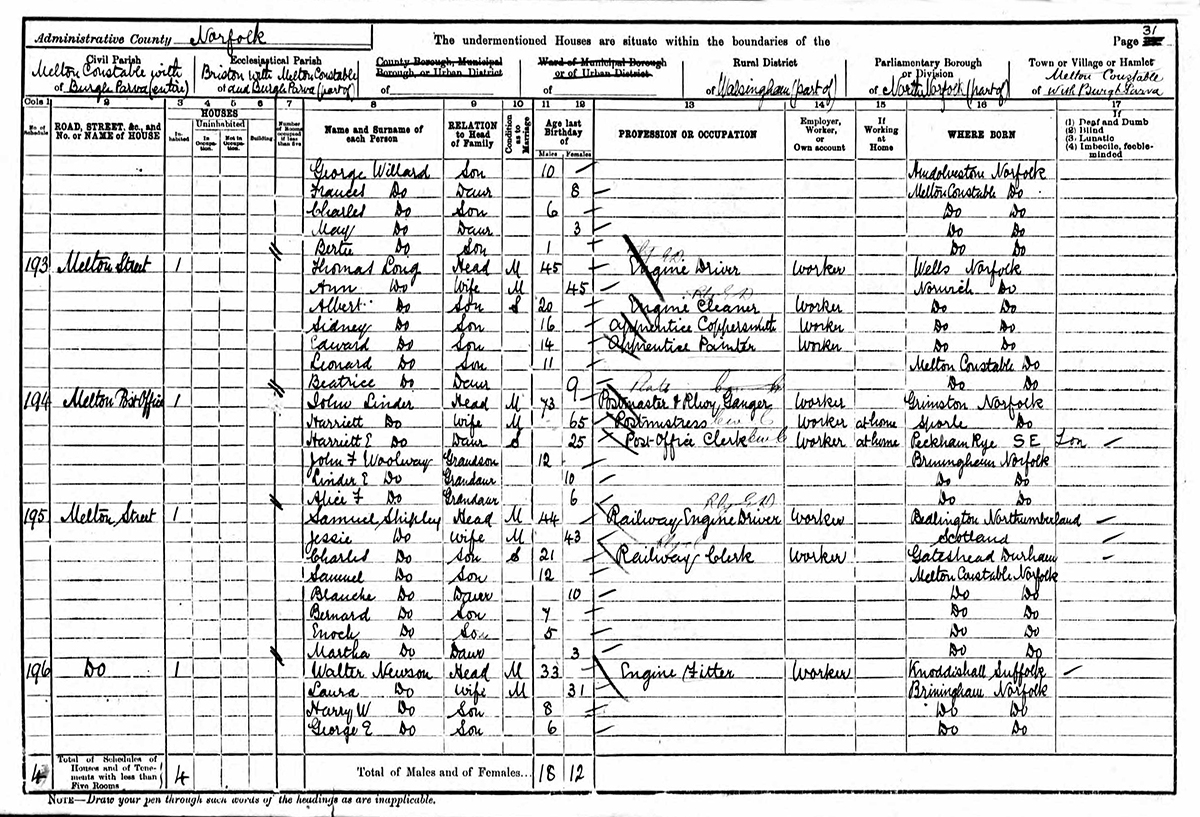 Administrative County Norfolk
The undermentioned Houses are situate within the boundaries of the
Page 31
Civil Parish
of Melton Constable with Burgh Parva (entire)
Ecclesiastical Parish
of Briston with Melton Constable and Burgh Parva (part of)
County Borough, Municipal Borough, or Urban District
of
Ward of Municipal Borough or of Urban District
of
Rural District
of Walsingham (part of)
Parliamentary Borough or Division
of North Norfolk (part of)
Town or Village or Hamlet
of Melton Constable with Burgh Parva
Cols 1 2 3 4 5 6 7 8 9 10 11 12 13 14 15 16 17
No. of Schedule
ROAD, STREET, &c., and No. or NAME of HOUSE
HOUSES
Inhabited
Uninhabited
In Occupation.
Not in Occupation.
Building
Number of Rooms occupied if less than five
Name and Surname of each Person
RELATION to Head of Family
Condition as to Marriage
Age last Birthday of
Males Females
PROFESSION OR OCCUPATION
Employer, Worker, or Own account
If Working at Home
WHERE BORN
If
(1) Deaf and Dumb
(2) Blind
(3) Lunatic
(4) Imbecile, feeble-minded
George Willard Son 10 Hindolveston Norfolk
Frances Do Daur 8 Melton Constable Do
Charles Do Son 6 Do Do
May Do Daur 3 Do Do
Bertie Do Son 1 Do Do
193 Melton Street 1 Thomas Long Head M 45 Engine Driver Worker Wells Norfolk
Ann Do Wife M 45 Norwich Do
Albert Do Son S 20 Engine Cleaner Worker Do Do
Sidney Do Son 16 Apprentice Coppersmith Worker Do Do
Edward Do Son 14 Apprentice Painter Worker Do Do
Leonard Do Son 11 Melton Constable Do
Beatrice Do Daur 9 Do Do
194 Melton Post Office 1 John Linder Head M 73 Postmaster & Rlwy Ganger Worker Grimston Norfolk
Harriett Do Wife M 65 Postmistress Worker at home Sporle Do
Harriett E Do Daur S 25 Post Office Clerk Worker at home Peckham Rye S E Lon
John F Woolway Grandson 12 Briningham Norfolk
Linder E Do Grandaur 10 Do Do
Alice F Do Grandaur 6 Do Do
195 Melton Street 1 Samuel Shipley Head M 44 Railway Engine Driver Worker Bedlington Northumberland
Jessie Do Wife M 43 Scotland
Charles Do Son S 21 Railway Clerk Worker Gateshead Durham
Samuel Do Son 12 Melton Constable Norfolk
Blanche Do Daur 10 Do Do
Bernard Do Son 7 Do Do
Enoch Do Son 5 Do Do
Martha Do Daur 3 Do Do
196 Do 1 Walter Newson Head M 33 Engine Fitter Worker Knoddishall Suffolk
Laura Do Wife M 31 Briningham Norfolk
Harry W Do Son 8 Do Do
George E Do Son 6 Do Do
4 Total of Schedules of Houses and of Tenements with less than Five Rooms 4 Total of Males and of Females... 18 12
NOTE—Draw your pen through such words of the headings as are inapplicable.